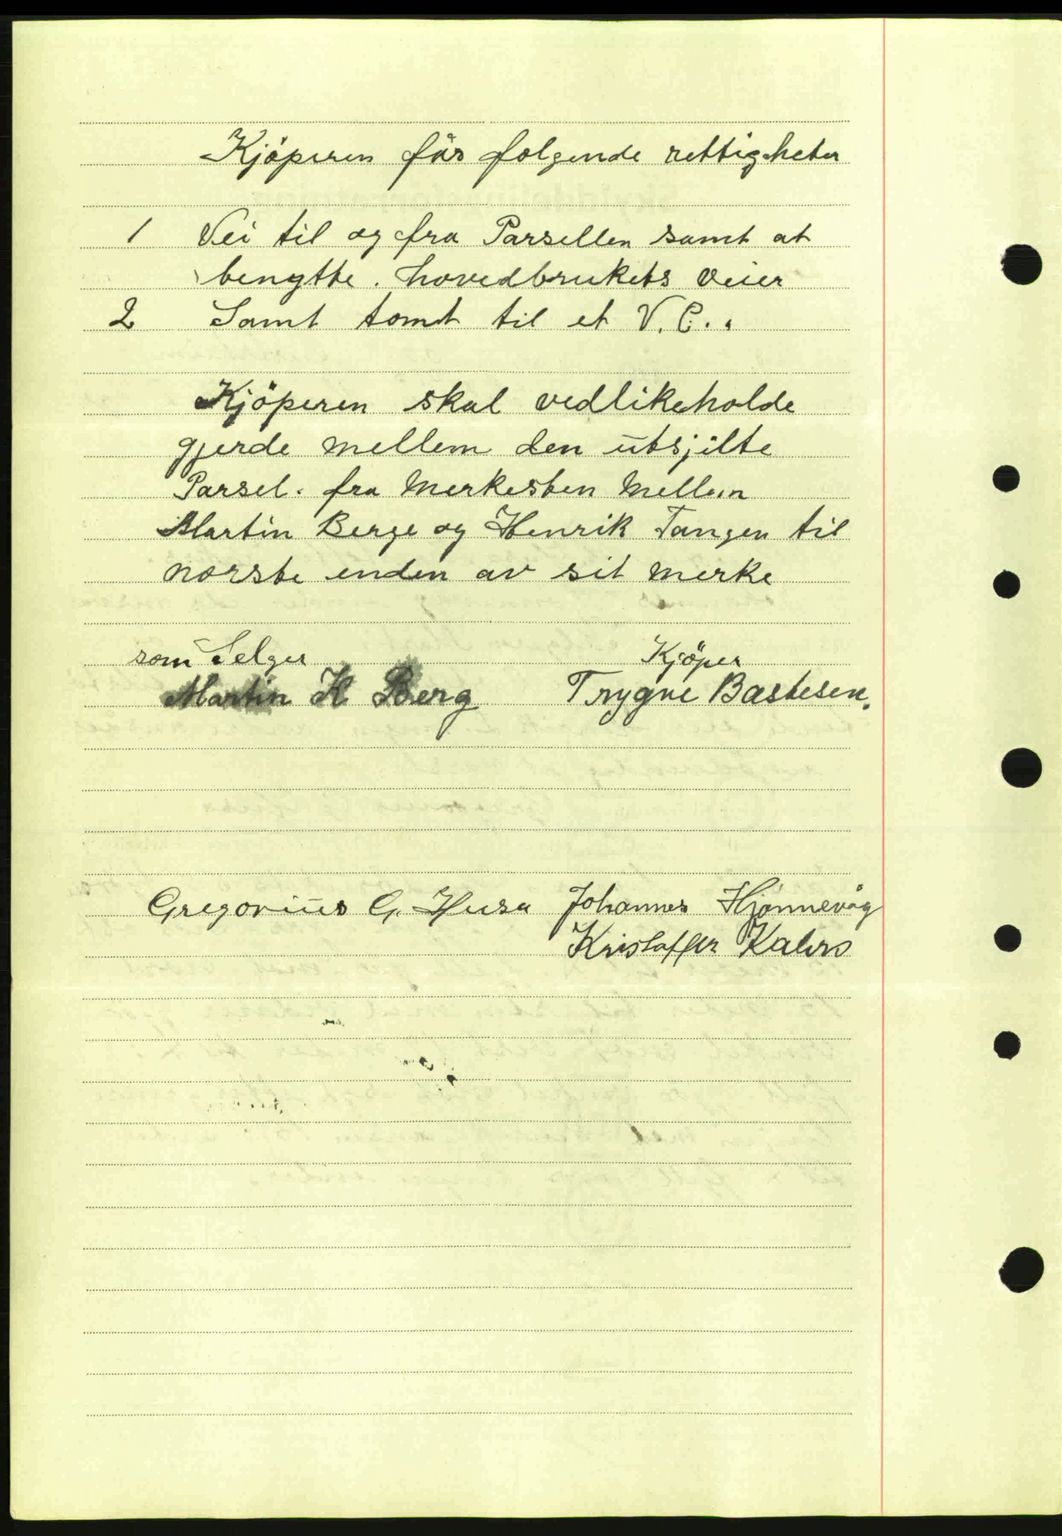 Kjöperen får følgende rettigheter
1 Vei til og fra Parsellen samt at
bengtte. hovedbrukets veier
2 Samt tomt til et V.C..
Kjöperen skal vedlikeholde
gjerde mellem den utsjilte
Parsel. fra Merkesten Mellem
Martin Berge og Henrik Tangen til
nørste enden av sit merke
som Selger Kjöper
Martin K Berg Trygve Bastesen.
Gregorius G. Husa Johannes Hjønnevåg
Kristoffer Kalvø